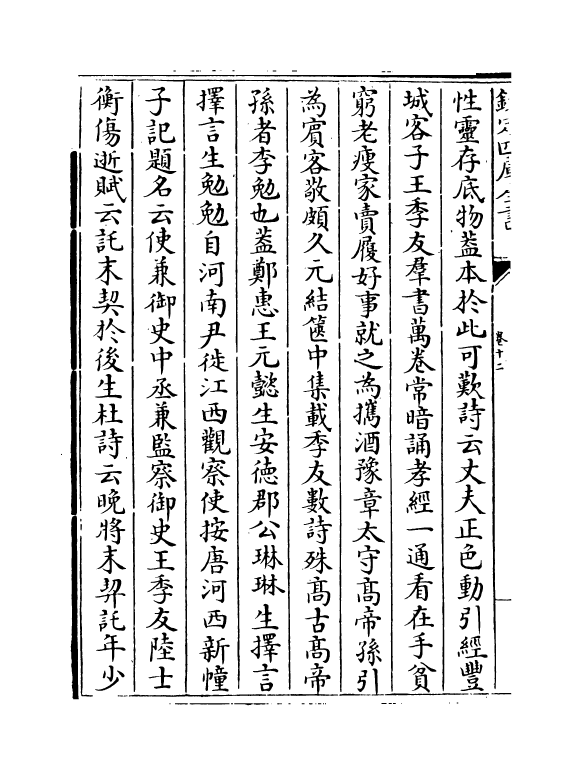 欽定四庫全書
卷十二
性靈存底物葢本於此可歎詩云丈夫正色動引經豐
城客子王季友羣書萬卷常暗誦孝經一通看在手貧
窮老瘦家賣屐好事就之為攜酒豫章太守髙帝孫引
為賔客敬頗久元結篋中集載季友數詩殊髙古髙帝
孫者李勉也葢鄭惠王元懿生安徳郡公琳琳生擇言
擇言生勉勉自河南尹徙江西觀察使按唐河西新幢
子記題名云使兼御史中丞兼監察御史王季友陸士
衡傷逝賦云託末契於後生杜詩云晚將末契託年少